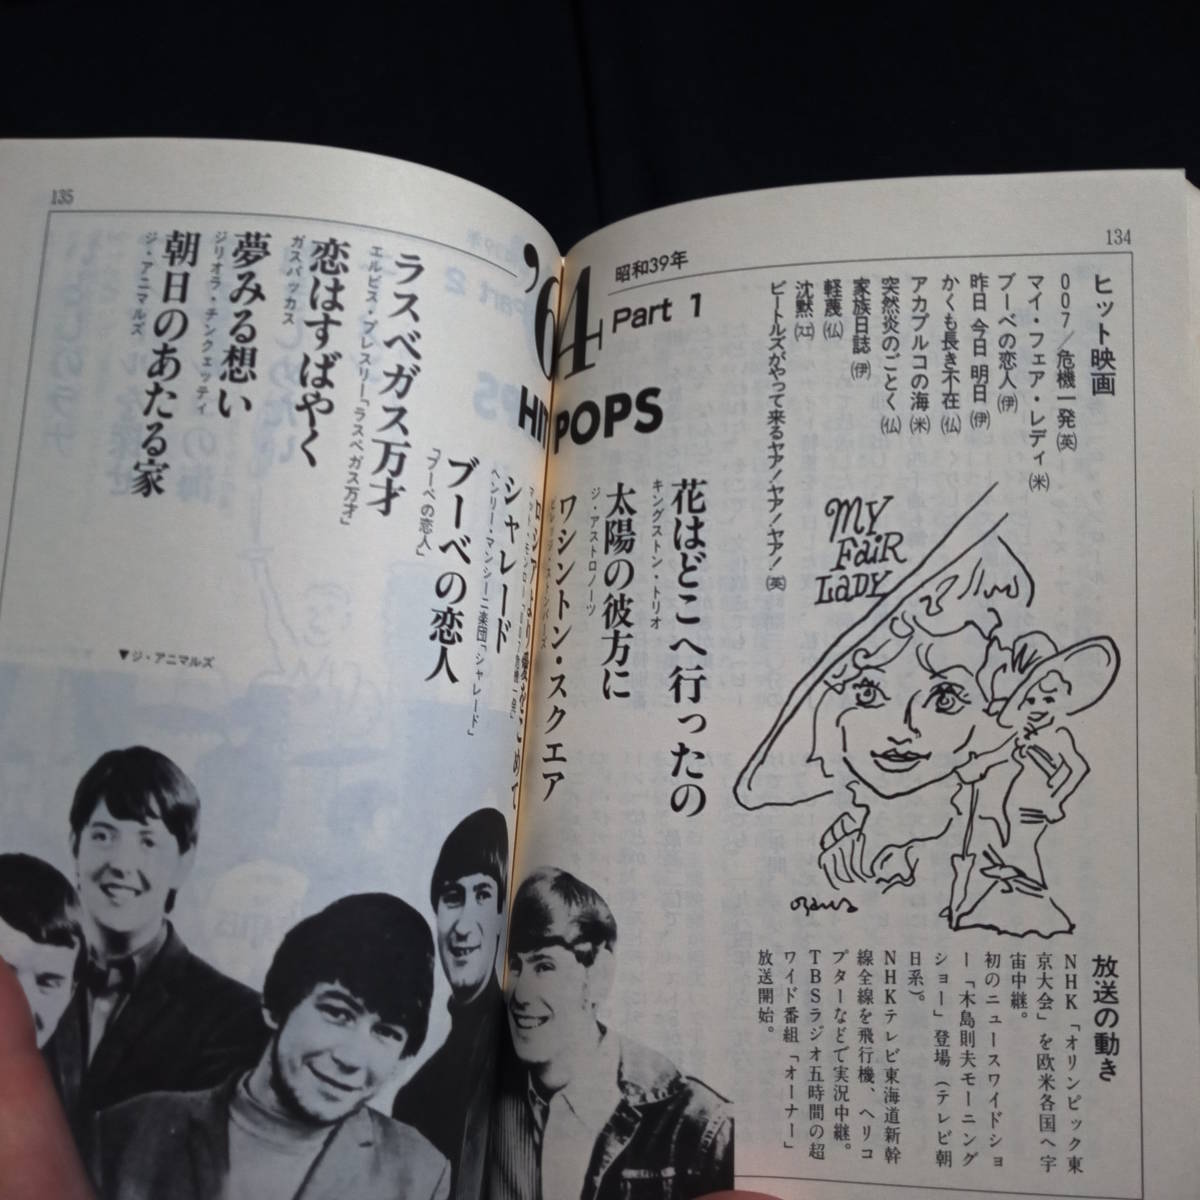 134
ヒット映画
007/危機一発(英)
マイ・フェア・レディ(米)
ブーベの恋人(伊)
昨日 今日 明日(伊)
かくも長き不在(仏)
アカプルコの海(米)
突然炎のごとく(仏)
家族日誌(伊)
軽蔑(仏)
沈黙
ビートルズがやって来るヤア!ヤア!ヤア!(英)
MY
FaiR
LaDY
放送の動き
NHK「オリンピック東
京大会」を欧米各国へ宇
宙中継。
初のニュースワイドショ
ー「木島則夫モーニング
ショー」登場(テレビ朝
日系)。
NHKテレビ東海道新幹
線全線を飛行機、ヘリコ
プターなどで実況中継。
TBSラジオ五時間の超
ワイド番組「オーナー」
放送開始。
昭和39年
'64 Part 1
HIT POPS
花はどこへ行ったの
キングストン・トリオ
太陽の彼方に
ジ・アストロノーツ
ワシントン・スクエア
ロシアより愛をこめて
シャレード
ヘンリー・マンシーニ楽団「シャレード」
ブーベの恋人
「ブーベの恋人」
135
ラスベガス万才
エルビス・プレスリー「ラスベガス万才」
恋はすばやく
ガスバッカス
夢みる想い
ジリオラ・チンクェッティ
朝日のあたる家
ジ・アニマルズ
▼ジ・アニマルズ